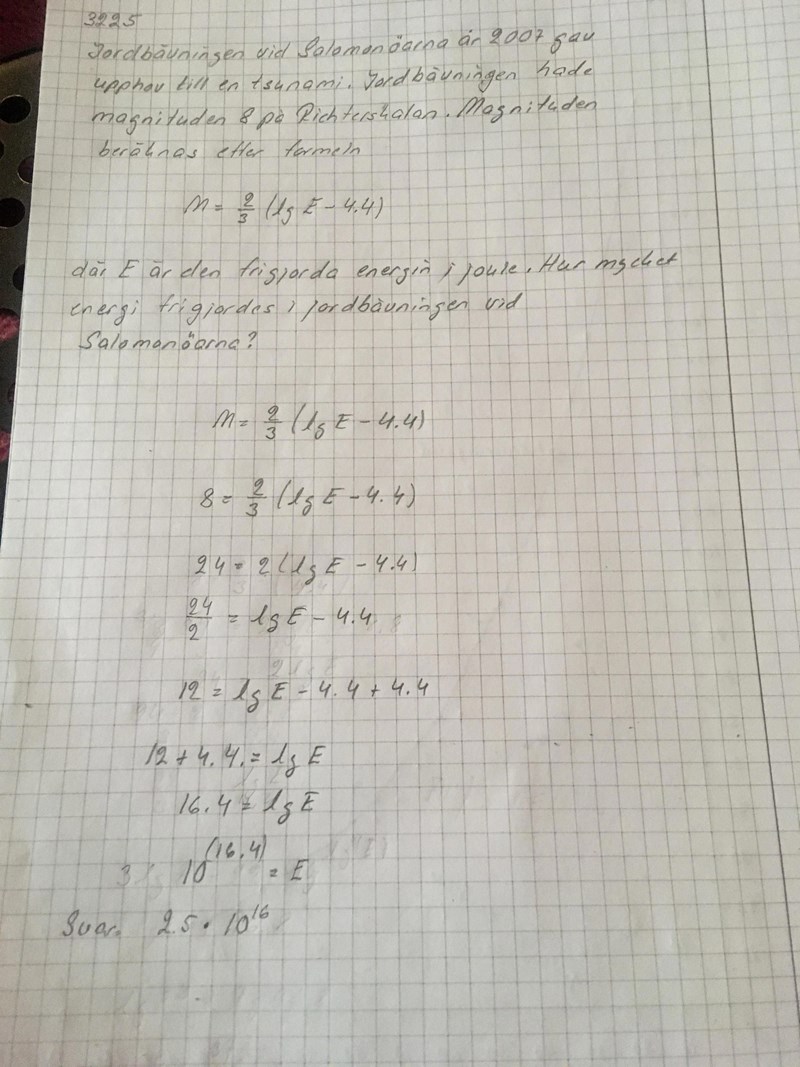 3225
Jordbävningen vid Salomonöarna år 2007 gav
upphov till en tsunami. Jordbävningen hade
magnituden 8 på Richterskalan. Magnituden
beräknas efter formeln
M = 2/3 (lg E - 4.4)
där E är den frigjorda energin i joule. Hur mycket
energi frigjordes i jordbävningen vid
Salomonöarna?
M = 2/3 (lg E - 4.4)
8 = 2/3 (lg E - 4.4)
24 = 2 (lg E - 4.4)
24/2 = lg E - 4.4
12 = lg E - 4.4 + 4.4
12 + 4.4. = lg E
16.4 = lg E
10^(16.4) = E
Svar. 2.5 · 10^16